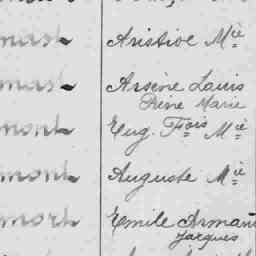 mast Aristide Mie
mast Arsène Louis
Réné Marie
mont Eug. Fois Mie
mont Auguste Mie
mort Emile Arman
Jacques